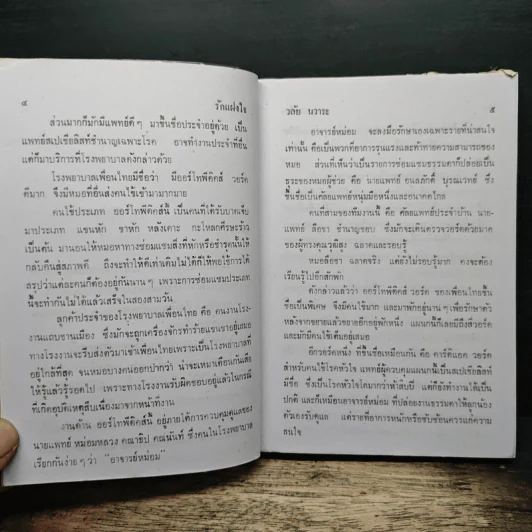 ๔ รักแฝงใจ
ส่วนมากก็มักมีแพทย์ดีๆ มาขึ้นชื่อประจำอยู่ด้วย เป็น
แพทย์สเปเชียลิสท์ชำนาญเฉพาะโรค อาจทำงานประจำที่อื่น
แต่ก็มาบริการที่โรงพยาบาลดังกล่าวด้วย
โรงพยาบาลเพื่อนไทยมีชื่อว่า มีออร์โทพีดิคส์ วอร์ด
ดีมาก จึงมีหมอที่อื่นส่งคนไข้เข้ามามากมาย
คนไข้ประเภท ออร์โทพีดิคส์นี้ เป็นคนที่ได้รับบาดเจ็บ
มาประเภท แขนหัก ขาหัก หลังเดาะ กะโหลกศีรษะร้าว
เป็นต้น มานอนให้หมอหาทางซ่อมแซมสิ่งที่หักหรือชำรุดนั้นให้
กลับคืนสู่สภาพดี ถึงจะทำให้ดีเท่าเดิมไม่ได้ก็ให้พอใช้การได้
สรุปว่าแต่ละคนก็ต้องอยู่กันนานๆ เพราะการซ่อมแซมประเภท
นี้จะทำกันไม่ได้แล้วเสร็จในสองสามวัน
ลูกค้าประจำของโรงพยาบาลเพื่อนไทย คือ คนงานโรง-
งานแถบชานเมือง ซึ่งมักจะถูกเครื่องจักรทำร้ายแขนขาอยู่เสมอ
ทางโรงงานจะรีบส่งตัวมาเข้าเพื่อนไทยเพราะเป็นโรงพยาบาลที่
อยู่ใกล้ที่สุด จนหมอบางคนบ่อยกว่า น่าจะเหมาเดือนกันเสีย
ให้รู้แล้วรู้รอดไป เพราะทางโรงงานรับผิดชอบอยู่แล้วในกรณี
ที่เกิดอุบัติเหตุสืบเนื่องมาจากหน้าที่งาน
งานด้าน ออร์โทพีดิคส์นี้ อยู่ภายใต้การควบคุมดูแลของ
นายแพทย์ หม่อมหลวง คณาธิป คณนันท์ ซึ่งคนในโรงพยาบาล
เรียกกันง่ายๆ ว่า "อาจารย์หม่อม"
วลัย นวาระ ๕
อาจารย์หม่อม จะลงมือรักษาเองเฉพาะรายที่น่าสนใจ
เท่านั้น คือเป็นพวกที่อาการรุนแรงและท้าทายความสามารถของ
หมอ ส่วนที่เห็นว่าเป็นรายการซ่อมแซมธรรมดาก็ปล่อยเป็น
ธุระของหมอผู้ช่วย คือ นายแพทย์ อนลภักดิ์ บูรณเวทย์ ซึ่ง
ขึ้นชื่อเป็นศัลยแพทย์หนุ่มมือหนึ่งและอนาคตไกล
คนที่สามของทีมงานนี้ คือ ศัลยแพทย์ประจำบ้าน นาย-
แพทย์ ลือชา ชำนาญชอบ ซึ่งมักจะเดินตรวจวอร์ดด้วยมาด
ของผู้ทรงคุณวุฒิสูง ฉลาดและรอบรู้
หมอลือชา ฉลาดจริง แต่ยังไม่รอบรู้มาก คงจะต้อง
เรียนรู้ไปอีกสักพัก
ดังกล่าวแล้วว่า ออร์โทพีดิคส์ วอร์ด ของเพื่อนไทยขึ้น
ชื่อเป็นพิเศษ จึงมีคนไข้มาก และมาพักอยู่นานๆ เพื่อรักษาตัว
หลังจากขยายแล้วขยายอีกอยู่พักหนึ่ง แผนกนี้ก็เลยมีถึงสี่วอร์ด
และมักมีคนไข้เต็มอยู่เสมอ
อีกวอร์ดหนึ่ง ที่ขึ้นชื่อเหมือนกัน คือ คาร์ดิแอค วอร์ด
สำหรับคนไข้โรคหัวใจ แพทย์ผู้ควบคุมแผนกนั้นเป็นสเปเชียลิสท์
มีชื่อ ซึ่งเป็นโรคหัวใจโตมากว่าห้าสิบปี แต่ก็ยังทำงานได้เป็น
ปกติ และก็เหมือนอาจารย์หม่อม ที่ปล่อยงานธรรมดาให้ลูกน้อง
ตัวเองรับดูแล แต่รายที่อาการหนักหรือซับซ้อนควรแก่ความ
สนใจ